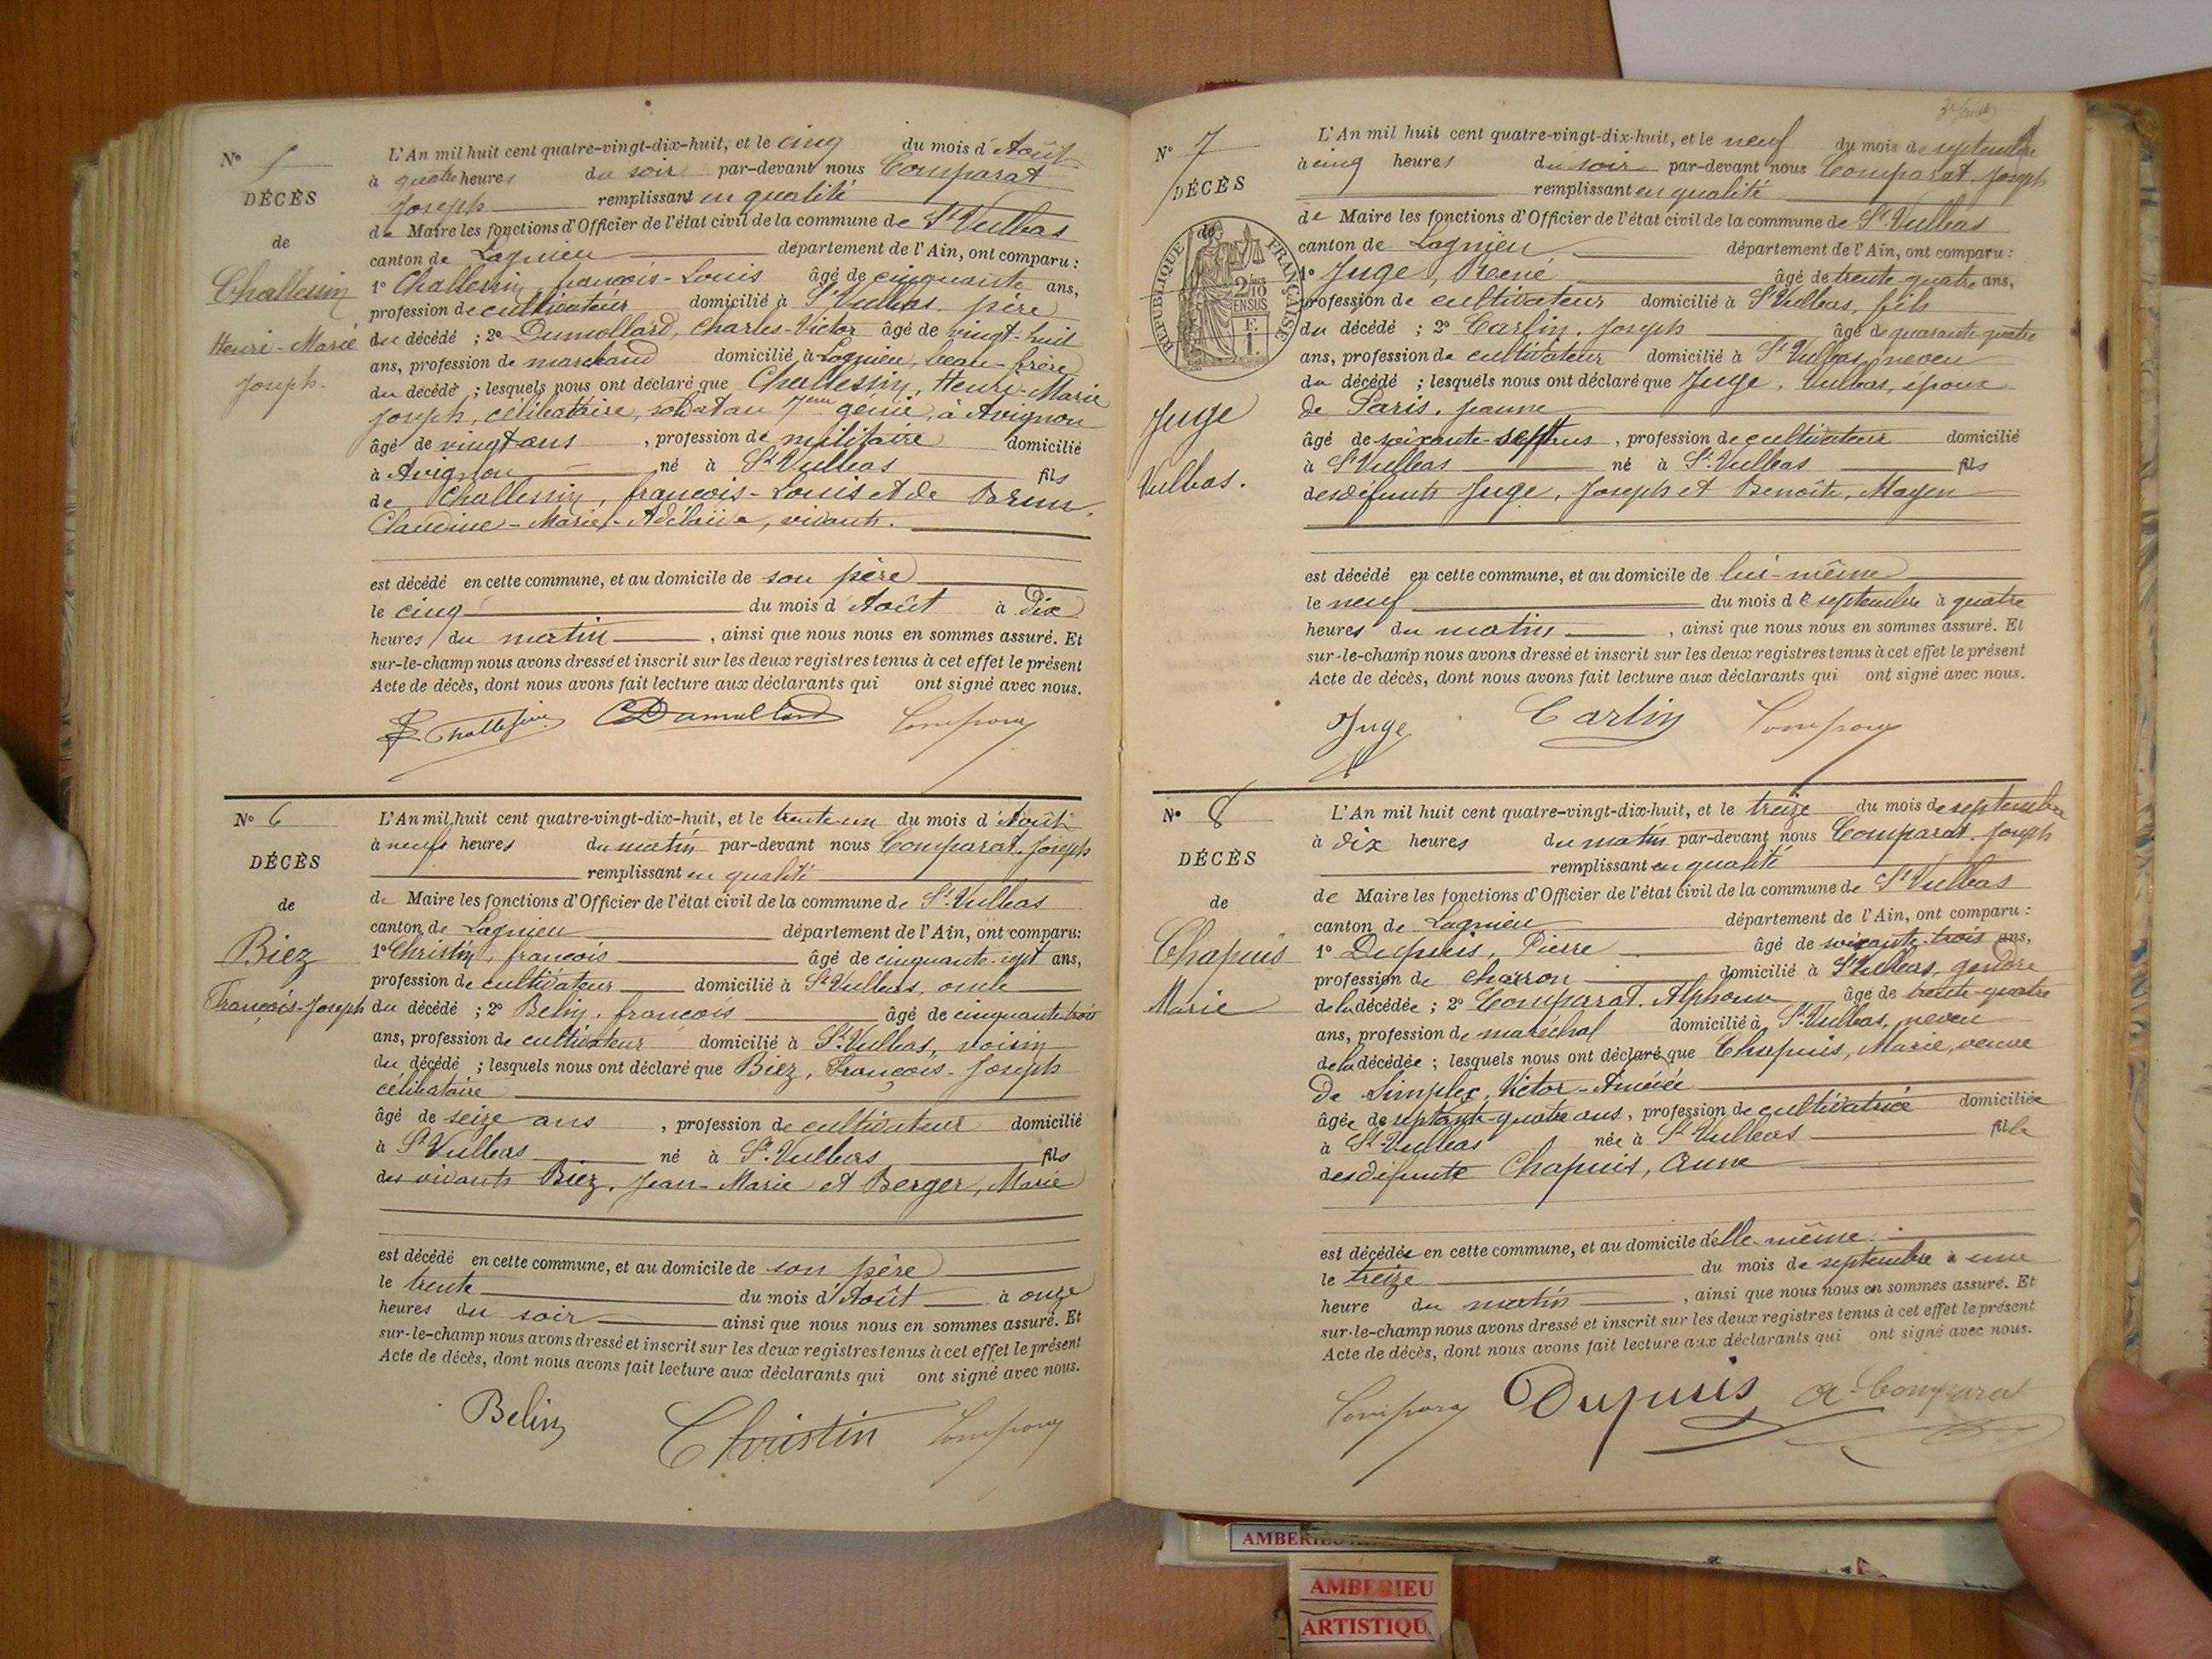 N° 5
DÉCÈS
de
Challessin
Henri-Marie
Joseph.
L'An mil huit cent quatre-vingt-dix-huit, et le cinq du mois d'Août
à quatre heures du soir par-devant nous Comparat
Joseph remplissant en qualité
de Maire les fonctions d'Officier de l'état civil de la commune de St Vulbas
canton de Lagnieu département de l'Ain, ont comparu :
1° Challessin, françois-Louis âgé de cinquante ans,
profession de cultivateur domicilié à St Vulbas, père
du décédé ; 2° Dumollard, Charles-Victor âgé de vingt-huit
ans, profession de marchand domicilié à Lagnieu, beau-frère
du décédé ; lesquels nous ont déclaré que Challessin, Henri-Marie
Joseph, célibataire, soldat au 7eme génie, à Avignon
âgé de vingt ans , profession de militaire domicilié
à Avignon né à St Vulbas fils
de Challessin, françois-Louis et de Brun,
Claudine-Marie-Adélaïde, vivants.
est décédé en cette commune, et au domicile de son père
le cinq du mois d'Août à dix
heures du matin , ainsi que nous nous en sommes assuré. Et
sur-le-champ nous avons dressé et inscrit sur les deux registres tenus à cet effet le présent
Acte de décès, dont nous avons fait lecture aux déclarants qui ont signé avec nous.
Challessin CDumollard Comparat
N° 6
DÉCÈS
de
Biez
François-Joseph
L'An mil huit cent quatre-vingt-dix-huit, et le trente-un du mois d'Août
à neuf heures du matin par-devant nous Comparat, Joseph
remplissant en qualité
de Maire les fonctions d'Officier de l'état civil de la commune de St Vulbas
canton de Lagnieu département de l'Ain, ont comparu:
1° Christin, françois âgé de cinquante-sept ans,
profession de cultivateur domicilié à St Vulbas, oncle
du décédé ; 2° Belin, françois âgé de cinquante trois
ans, profession de cultivateur domicilié à St Vulbas, voisin
du décédé ; lesquels nous ont déclaré que Biez, François-Joseph
célibataire
âgé de seize ans , profession de cultivateur domicilié
à St Vulbas né à St Vulbas fils
des vivants Biez, Jean-Marie et Berger, Marie
est décédé en cette commune, et au domicile de son père
le trente du mois d'Août à onze
heures du soir ainsi que nous nous en sommes assuré. Et
sur-le-champ nous avons dressé et inscrit sur les deux registres tenus à cet effet le présent
Acte de décès, dont nous avons fait lecture aux déclarants qui ont signé avec nous.
Belin Christin Comparat
N° 7
DÉCÈS
de
RÉPUBLIQUE FRANÇAISE
2/10
EN SUS
Juge
Vulbas.
L'An mil huit cent quatre-vingt-dix-huit, et le neuf du mois de septembre
à cinq heures du soir par-devant nous Comparat, Joseph
remplissant en qualité
de Maire les fonctions d'Officier de l'état civil de la commune de St Vulbas
canton de Lagnieu département de l'Ain, ont comparu :
1° Juge, René âgé de trente-quatre ans,
profession de cultivateur domicilié à St Vulbas, fils
du décédé ; 2° Carlin, Joseph âgé de quarante-quatre
ans, profession de cultivateur domicilié à St Vulbas, neveu
du décédé ; lesquels nous ont déclaré que Juge, Vulbas, époux
de Paris, Jeanne
âgé de soixante-sept ans , profession de cultivateur domicilié
à St Vulbas né à St Vulbas fils
des défunts Juge, Joseph et Benoîte, Mayen
est décédé en cette commune, et au domicile de lui-même
le neuf du mois de septembre à quatre
heures du matin , ainsi que nous nous en sommes assuré. Et
sur-le-champ nous avons dressé et inscrit sur les deux registres tenus à cet effet le présent
Acte de décès, dont nous avons fait lecture aux déclarants qui ont signé avec nous.
Juge Carlin Comparat
N° 8
DÉCÈS
de
Chapuis
Marie
L'An mil huit cent quatre-vingt-dix-huit, et le treize du mois de septembre
à dix heures du matin par-devant nous Comparat, Joseph
remplissant en qualité
de Maire les fonctions d'Officier de l'état civil de la commune de St Vulbas
canton de Lagnieu département de l'Ain, ont comparu :
1° Dupuis, Pierre âgé de soixante-trois ans,
profession de charron domicilié à St Vulbas, gendre
de la décédée ; 2° Comparat, Alphonse âgé de trente-quatre
ans, profession de maréchal domicilié à St Vulbas, neveu
de la décédée ; lesquels nous ont déclaré que Chapuis, Marie, veuve
de Simplex, Victor-Amédée
âgée de septante-quatre ans, profession de cultivatrice domiciliée
à St Vulbas née à St Vulbas fille
des défunte Chapuis, Anne
est décédée en cette commune, et au domicile d'elle-même.
le treize du mois de septembre à une
heure du matin , ainsi que nous nous en sommes assuré. Et
sur-le-champ nous avons dressé et inscrit sur les deux registres tenus à cet effet le présent
Acte de décès, dont nous avons fait lecture aux déclarants qui ont signé avec nous.
Comparat Dupuis A. Comparat
AMBERIEU
ARTISTIQU